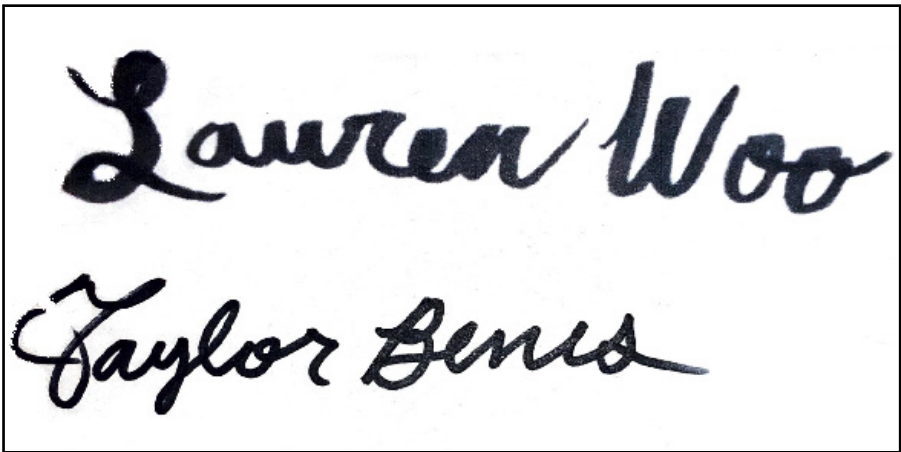 Lauren Woo
Taylor Benis